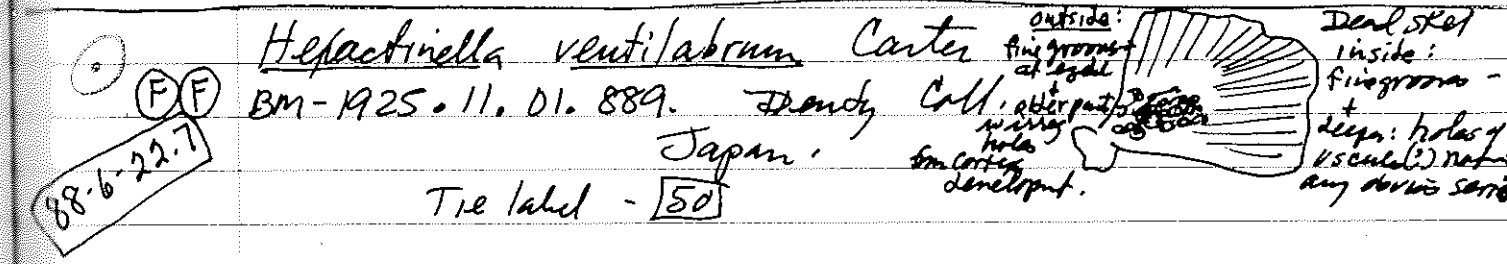 Hexactinella ventilabrum Carter
F F BM-1925.11.01.889. Dendy Coll.
Japan.
88-6-22.7
Tie label - 50
outside:
fine grooves
at edge
+
other parts
holes
from cortex
developmt.
Dead skel
inside:
fine grooves -
+
deeper: holes of
any obvious